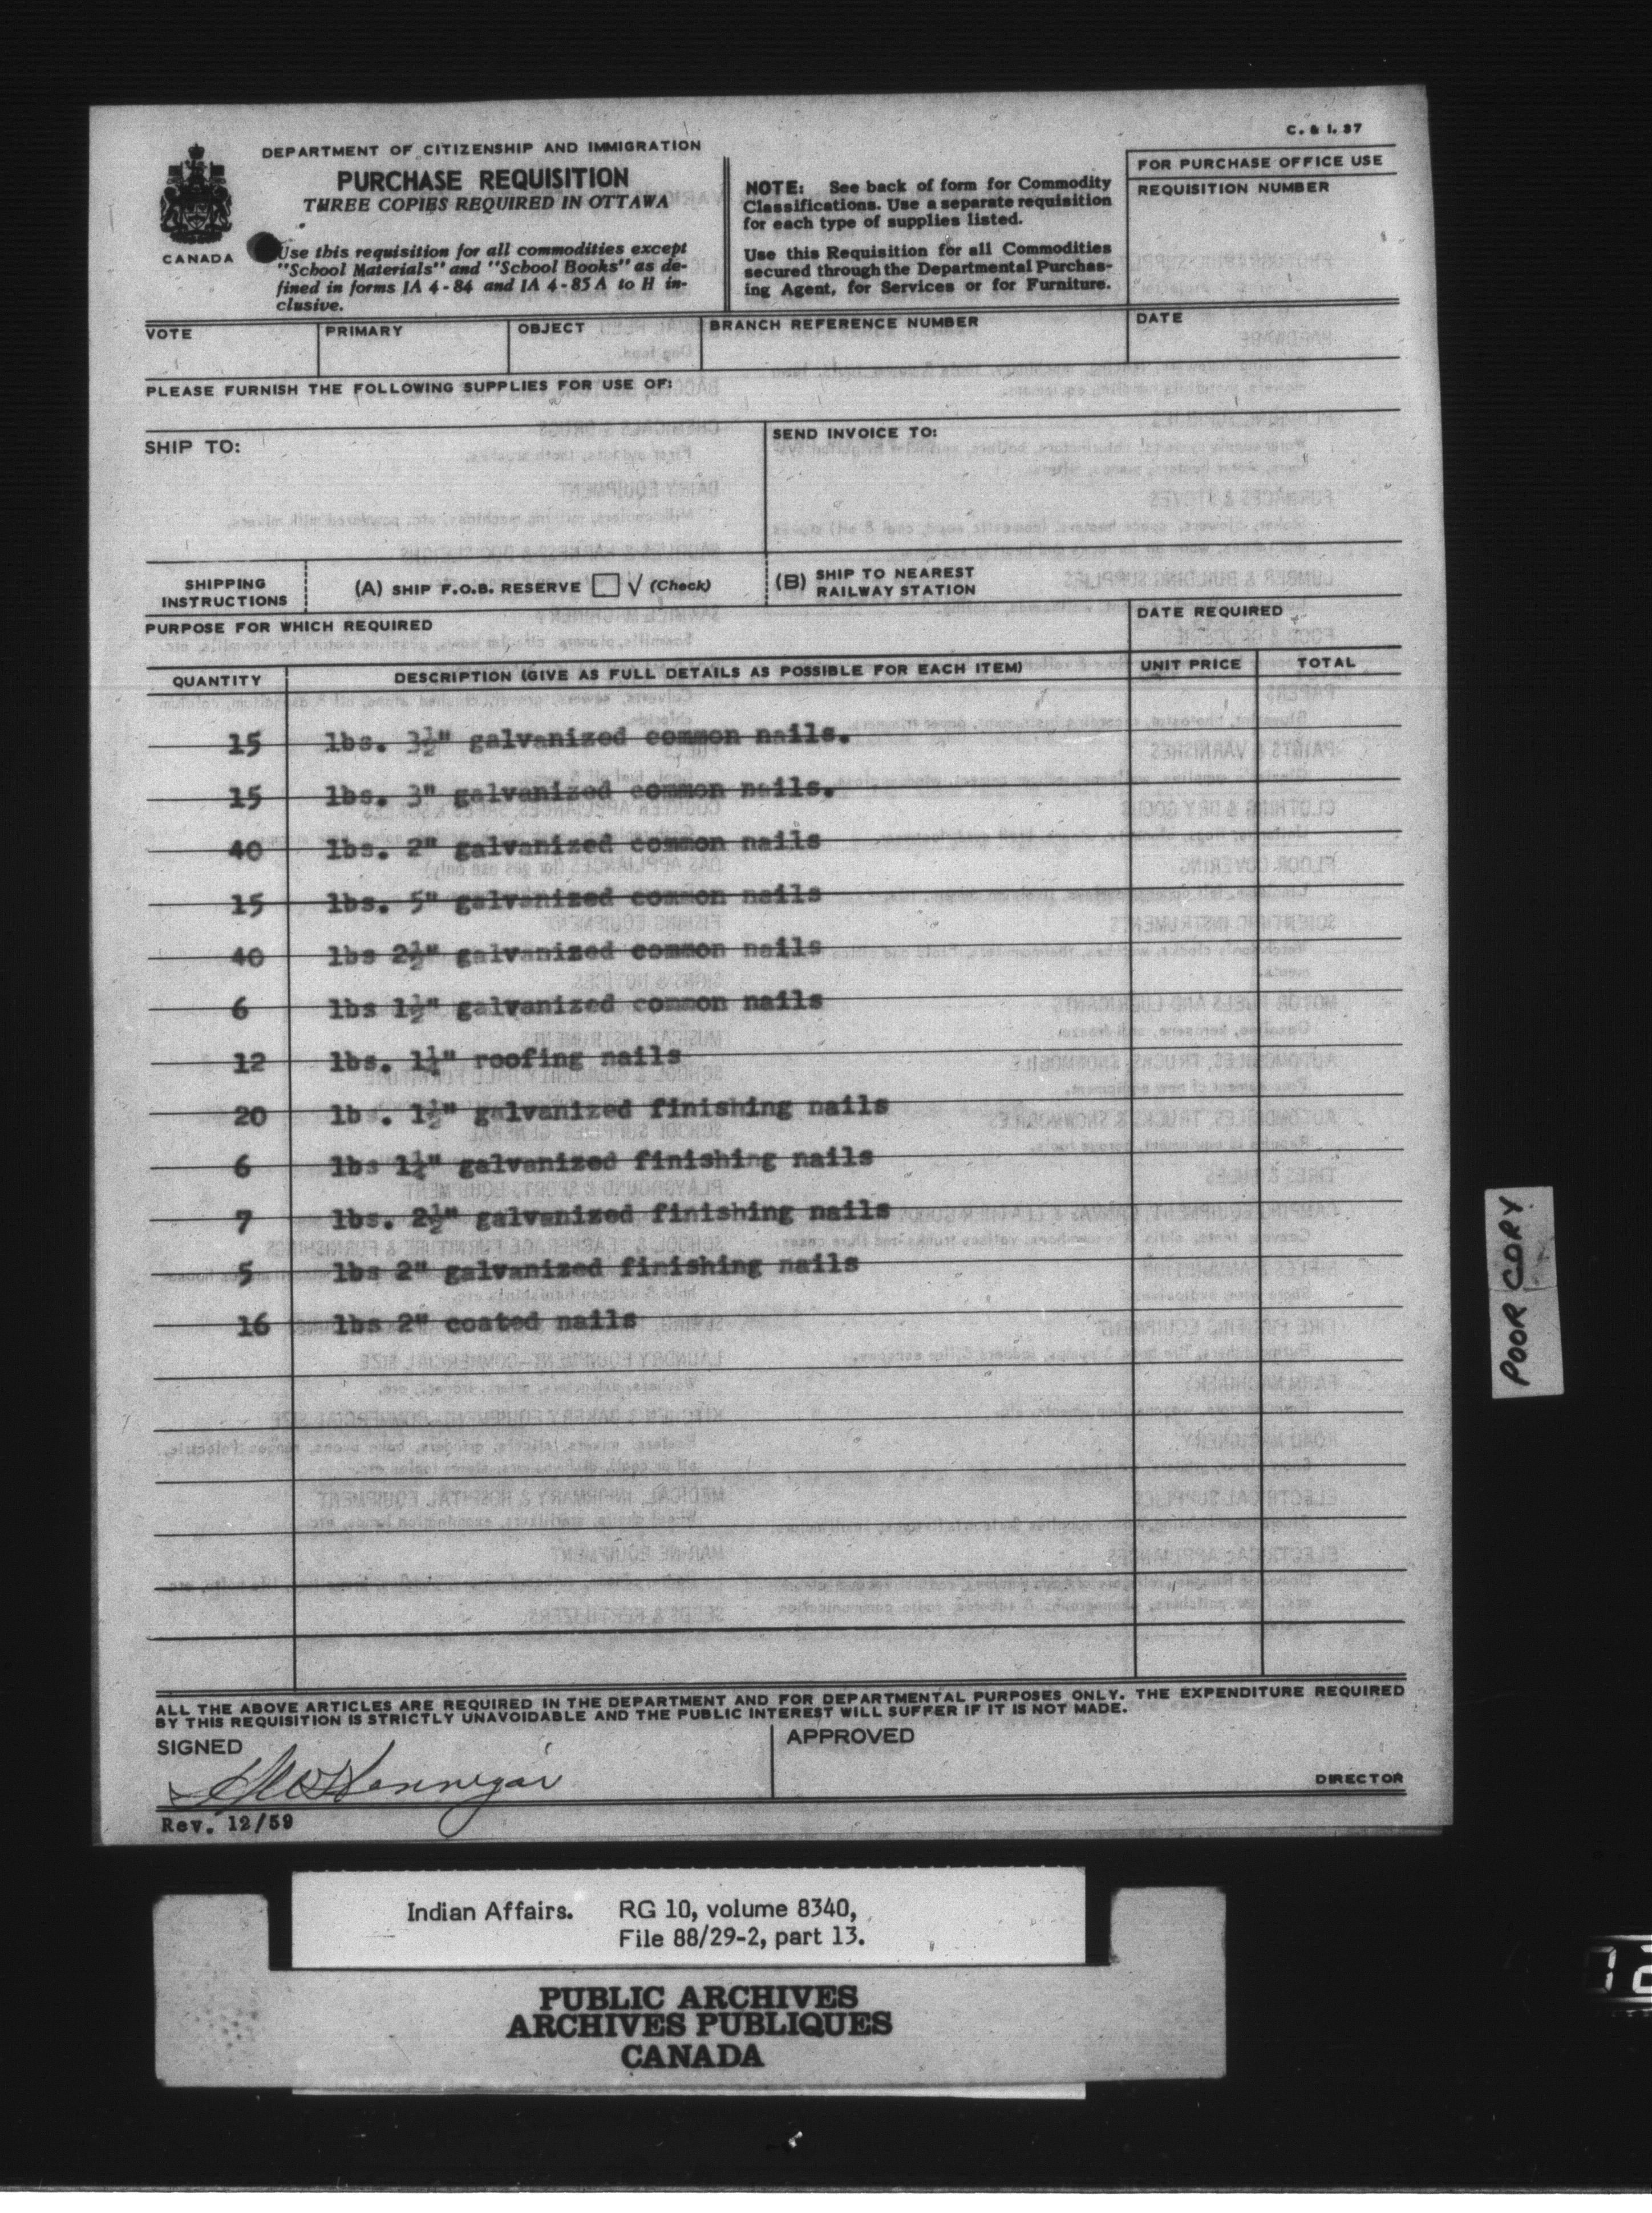 C. & I. 37
DEPARTMENT OF CITIZENSHIP AND IMMIGRATION
PURCHASE REQUISITION
THREE COPIES REQUIRED IN OTTAWA
CANADA
Use this requisition for all commodities except
"School Materials" and "School Books" as de-
fined in forms IA 4-84 and IA 4-85 A to H in-
clusive.
NOTE: See back of form for Commodity
Classifications. Use a separate requisition
for each type of supplies listed.
Use this Requisition for all Commodities
secured through the Departmental Purchas-
ing Agent, for Services or for Furniture.
FOR PURCHASE OFFICE USE
REQUISITION NUMBER
VOTE PRIMARY OBJECT BRANCH REFERENCE NUMBER DATE
PLEASE FURNISH THE FOLLOWING SUPPLIES FOR USE OF:
SHIP TO: SEND INVOICE TO:
SHIPPING
INSTRUCTIONS
(A) SHIP F.O.B. RESERVE √ (Check)
(B) SHIP TO NEAREST
RAILWAY STATION
PURPOSE FOR WHICH REQUIRED DATE REQUIRED
QUANTITY DESCRIPTION (GIVE AS FULL DETAILS AS POSSIBLE FOR EACH ITEM) UNIT PRICE TOTAL
15 lbs. 3½" galvanized common nails.
15 lbs. 3" galvanized common nails.
40 lbs. 2" galvanized common nails
15 lbs. 5" galvanized common nails
40 lbs 2½" galvanized common nails
6 lbs 1½" galvanized common nails
12 lbs. 1¼" roofing nails
20 lb . 1½" galvanized finishing nails
6 lbs 1¼" galvanized finishing nails
7 lbs. 2½" galvanized finishing nails
5 lbs 2" galvanized finishing nails
16 lbs 2" coated nails
ALL THE ABOVE ARTICLES ARE REQUIRED IN THE DEPARTMENT AND FOR DEPARTMENTAL PURPOSES ONLY. THE EXPENDITURE REQUIRED
BY THIS REQUISITION IS STRICTLY UNAVOIDABLE AND THE PUBLIC INTEREST WILL SUFFER IF IT IS NOT MADE.
SIGNED APPROVED
DIRECTOR
Rev. 12/59
POOR COPY
Indian Affairs. RG 10, volume 8340,
File 88/29-2, part 13.
PUBLIC ARCHIVES
ARCHIVES PUBLIQUES
CANADA